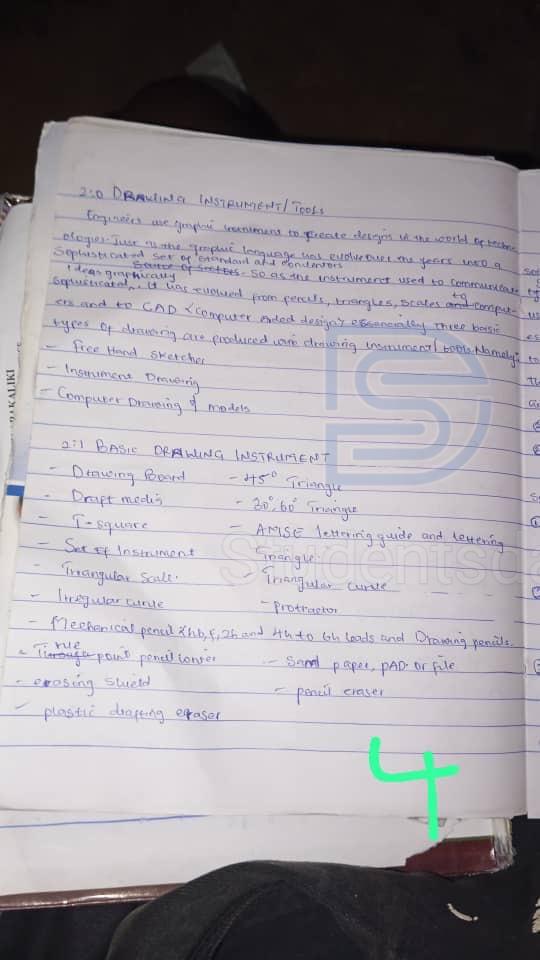 2:0 DRAWING INSTRUMENT/TOOLS
Engineers use graphic instrument to create designs in the world of techn
ologies. Just as the graphic language has evolve over the years into a
Sophisticated set of standard and
Ideas graphically
So as the instrument used to communicate
sophisticated, It has evolved from pencils, triangles, scales and to comput-
ers and to CAD <computer Aded design> essencially three basic
types of drawing are produced drawing instrument/tools. Namely:
- Free Hand Sketches
- Instrument Drawing
- Computer Drawing & models
2:1 BASIC DRAWING INSTRUMENT
- Drawing Board - 45° Triangle
- Draft media - 30°, 60° Triangle
- T-square - AMSE lettering guide and lettering
- Set of Instrument Triangle.
- Triangular Scale. - Triangular curve
- Irregular curve - Protractor
- Mechanical pencil & hb, f, 2h and 4h to 6h leads and Drawing pencils.
- point pencil - Sand paper, pAD. or file
- erosing shield - pencil eraser
- plastic drafting eraser
4
DAKALIKI
Students